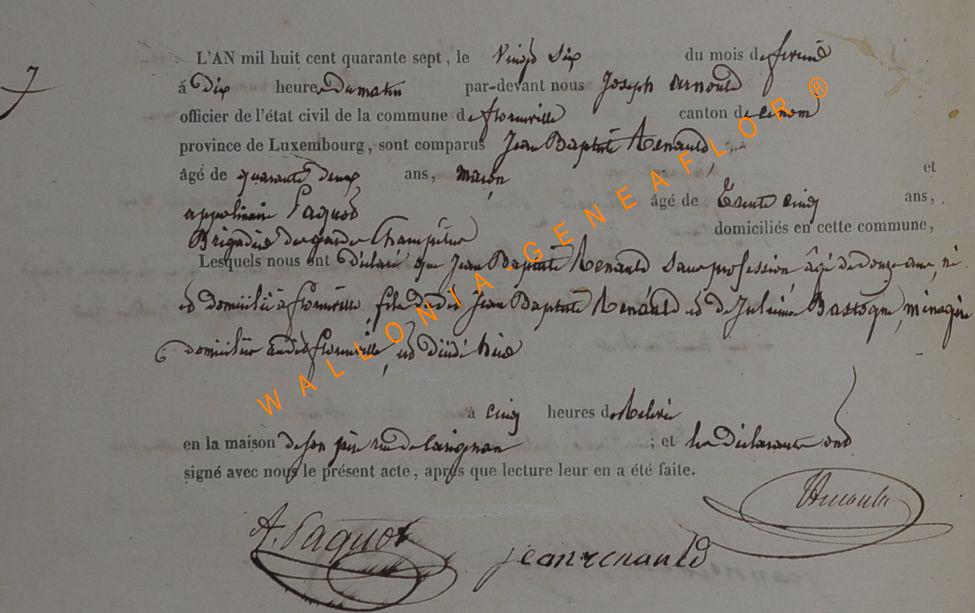 7
L'AN mil huit cent quarante sept, le Vingt Six du mois de fevrier
à Dix heures du matin par-devant nous Joseph Arnould
officier de l'état civil de la commune de florenville canton de ce nom
province de Luxembourg, sont comparus Jean Baptiste Renauld,
âgé de quarante deux ans, maçon et
appolinaire Paquot âgé de Trente cinq ans,
Brigadier des gardes Champêtres domiciliés en cette commune,
Lesquels nous ont déclaré que Jean Baptiste Renauld, Sans profession, âgé de douze ans, né
et domicilié à florenville, fils dudit Jean Baptiste Renauld et de Julienne Bastogne, ménagère
domiciliée audit florenville, est décédé hier
à cinq heures de Relevée
en la maison de son père rue de Carignan ; et les déclarants ont
signé avec nous le présent acte, après que lecture leur en a été faite.
A. Paquot jean renauld Arnould
WALLONIA GENEAFLOR ®